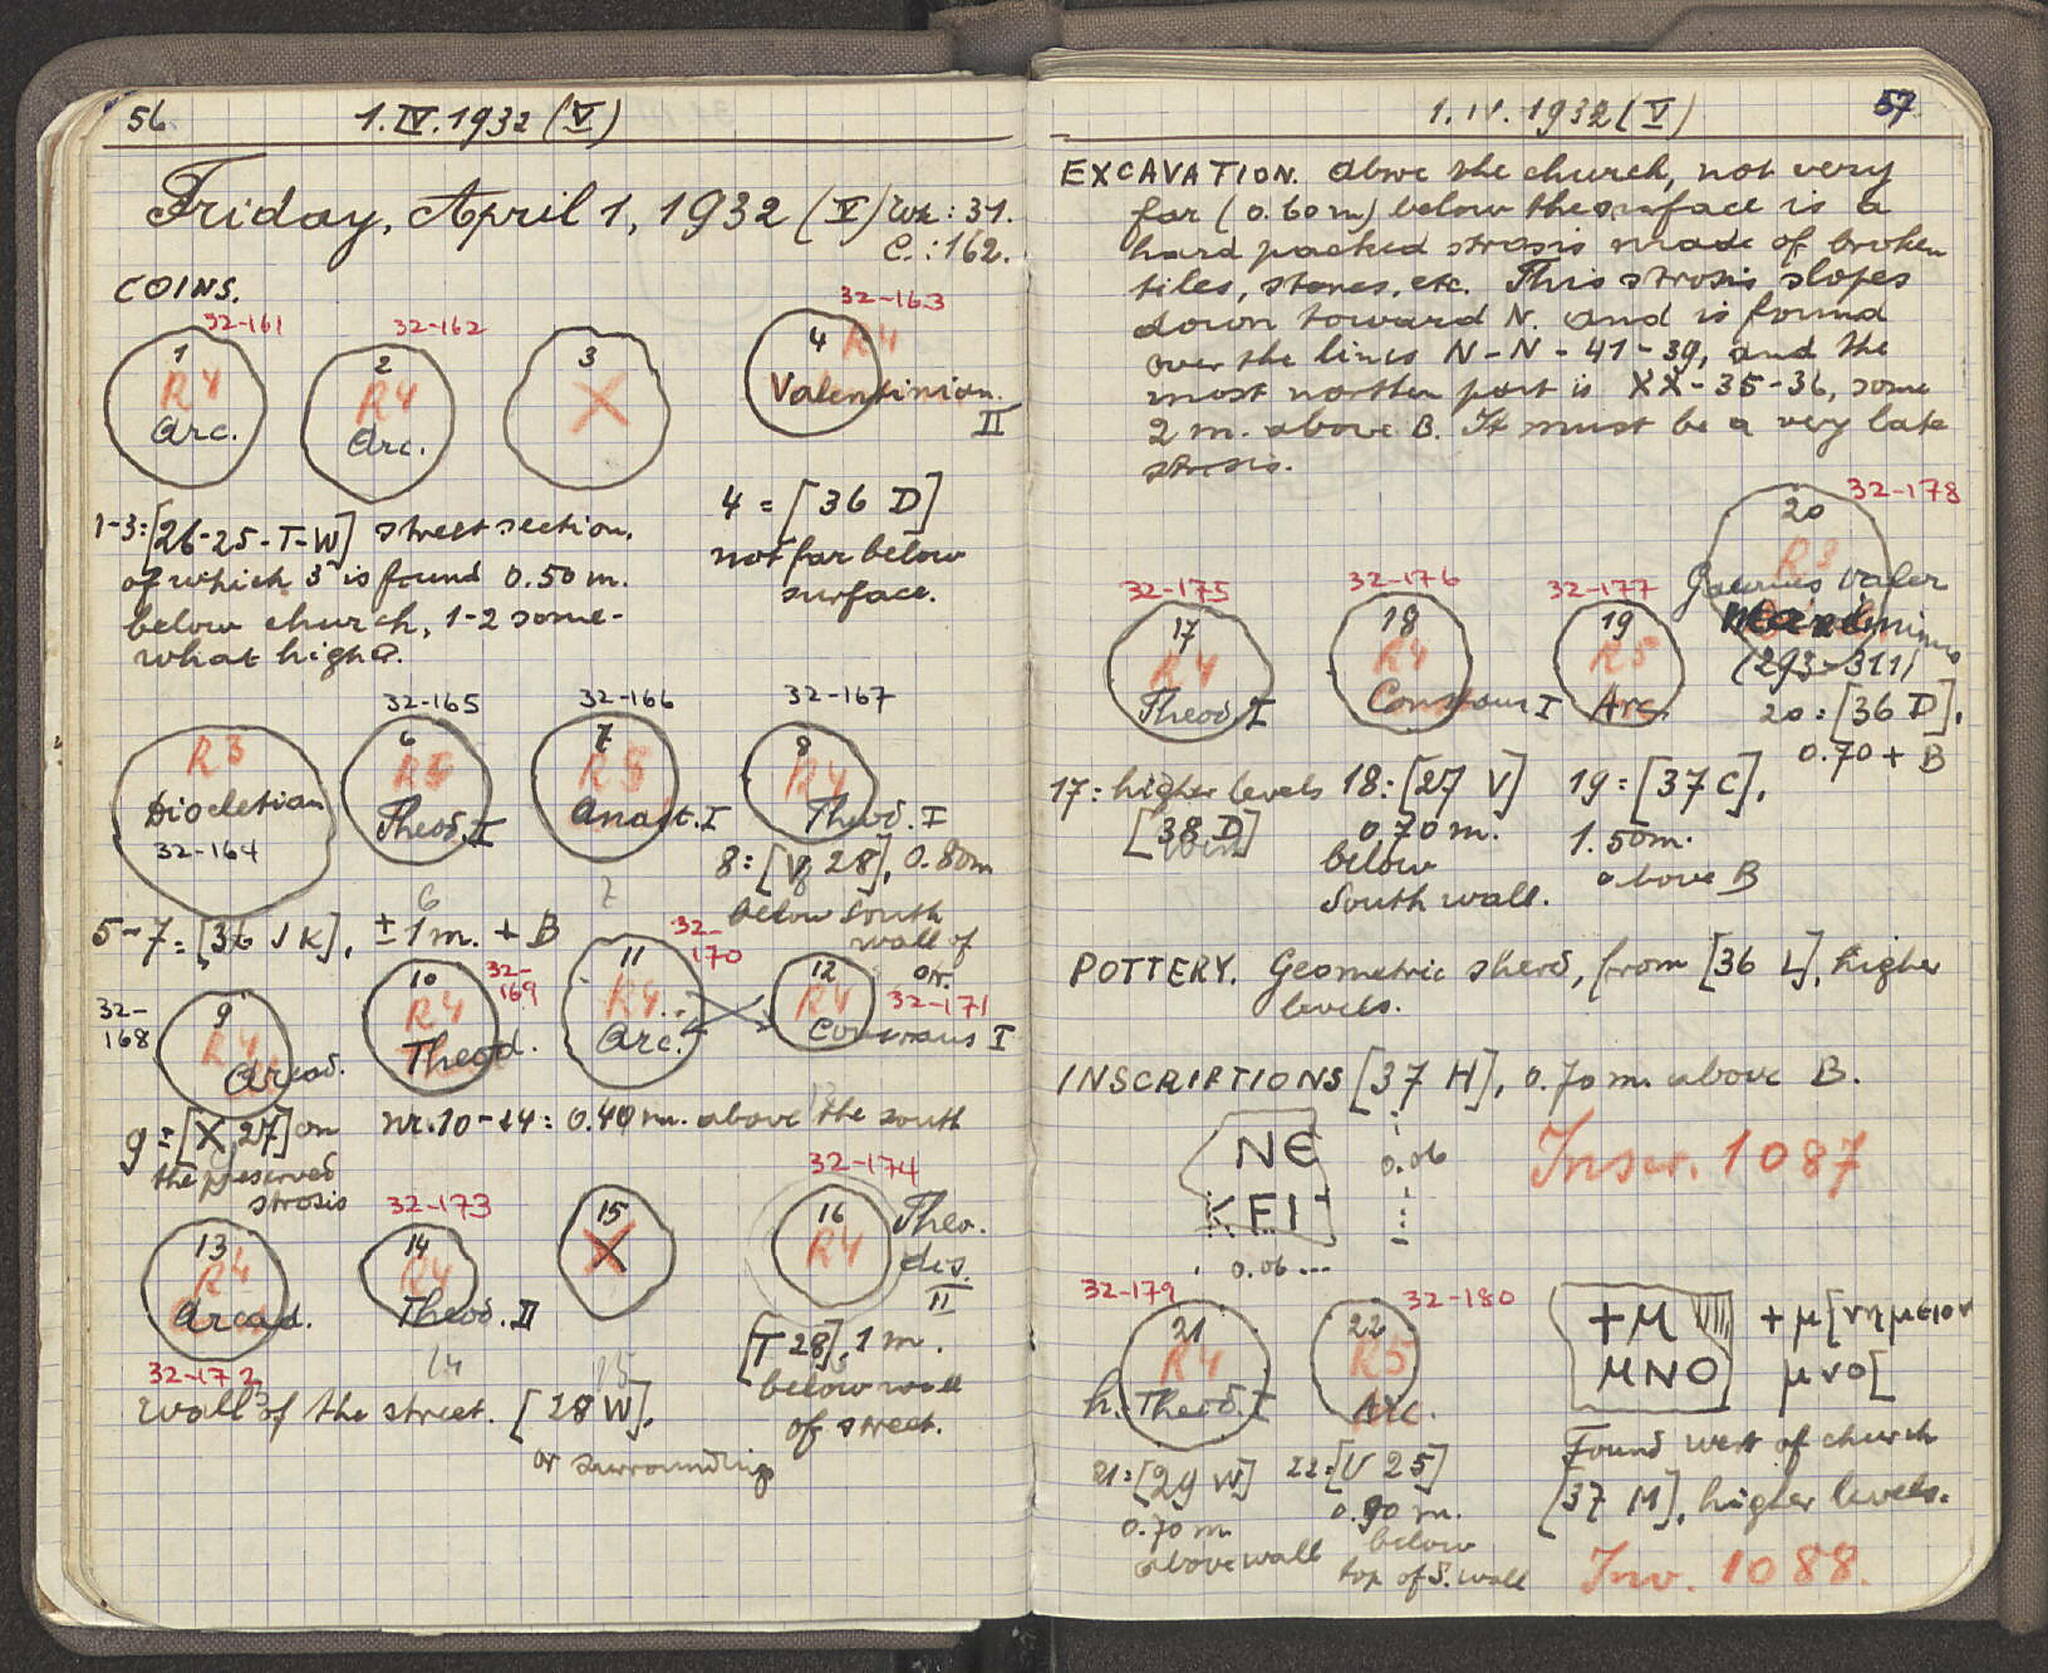 56
1.IV.1932 (V)
Friday, April 1, 1932 (V) Wk: 31.
C.: 162.
COINS.
32-161
1
R4
Arc.
32-162
2
R4
Arc.
3
X
32-163
4
R4
Valentinian.
II
1-3: [26-25-T-W] street section,
of which 3 is found 0.50 m.
below church, 1-2 some-
what higher.
4 = [36 D]
not far below
surface.
R3
Diocletian
32-164
32-165
6
R5
Theod. II
32-166
7
R5
Anast. I
32-167
8
R4
Theod. I
8: [V 28], 0.80m
below south
wall of
str.
6
7
5-7 = [36 J K], ± 1 m. + B
32-
168
9
R4
Arcad.
10
R4
Theod.
32-
169
11
R4
Arc.
32-
170
12
R4
Constans I
32-171
9 = [X 27] on
the preserved
strosis
nr. 10-14: 0.40 m. above the south
13
R4
Arcad.
32-172
32-173
14
R4
Theod. II
15
X
32-174
16
R4
Theo.
dos.
II
13
14
15
wall of the street. [28 W],
or surrounding
[T 28], 1 m.
below wall
of street.
1.IV.1932 (V)
57
EXCAVATION. Above the church, not very
far (0.60 m) below the surface is a
hard packed strosis made of broken
tiles, stones, etc. This strosis slopes
down toward N. and is found
over the lines N-N-41-39, and the
most northern part is XX-35-36, some
2 m. above B. It must be a very late
strosis.
32-175
17
R4
Theod. I
32-176
18
R4
Constans I
32-177
19
R5
Arc.
32-178
20
R3
Galerius Valer
Maximinus
(293-311)
20 = [36 D],
0.70 + B
17: higher levels
[38 D]
18: [27 V]
0.70 m.
below
South wall.
19 = [37 C],
1.50m.
above B
POTTERY. Geometric sherd, from [36 L], higher
levels.
INSCRIPTIONS [37 H], 0.70 m. above B.
NE
KEI
0.06
0.06
Inscr. 1087
32-179
21
R4
Theod. I
32-180
22
R5
Arc.
+M
MNO
+ μ[νημειον
μνο[
21 = [29 W]
0.70 m.
above wall
22 = [V 25]
0.90 m.
below
top of S. wall
Found west of church
[37 M], higher levels.
Inv. 1088.